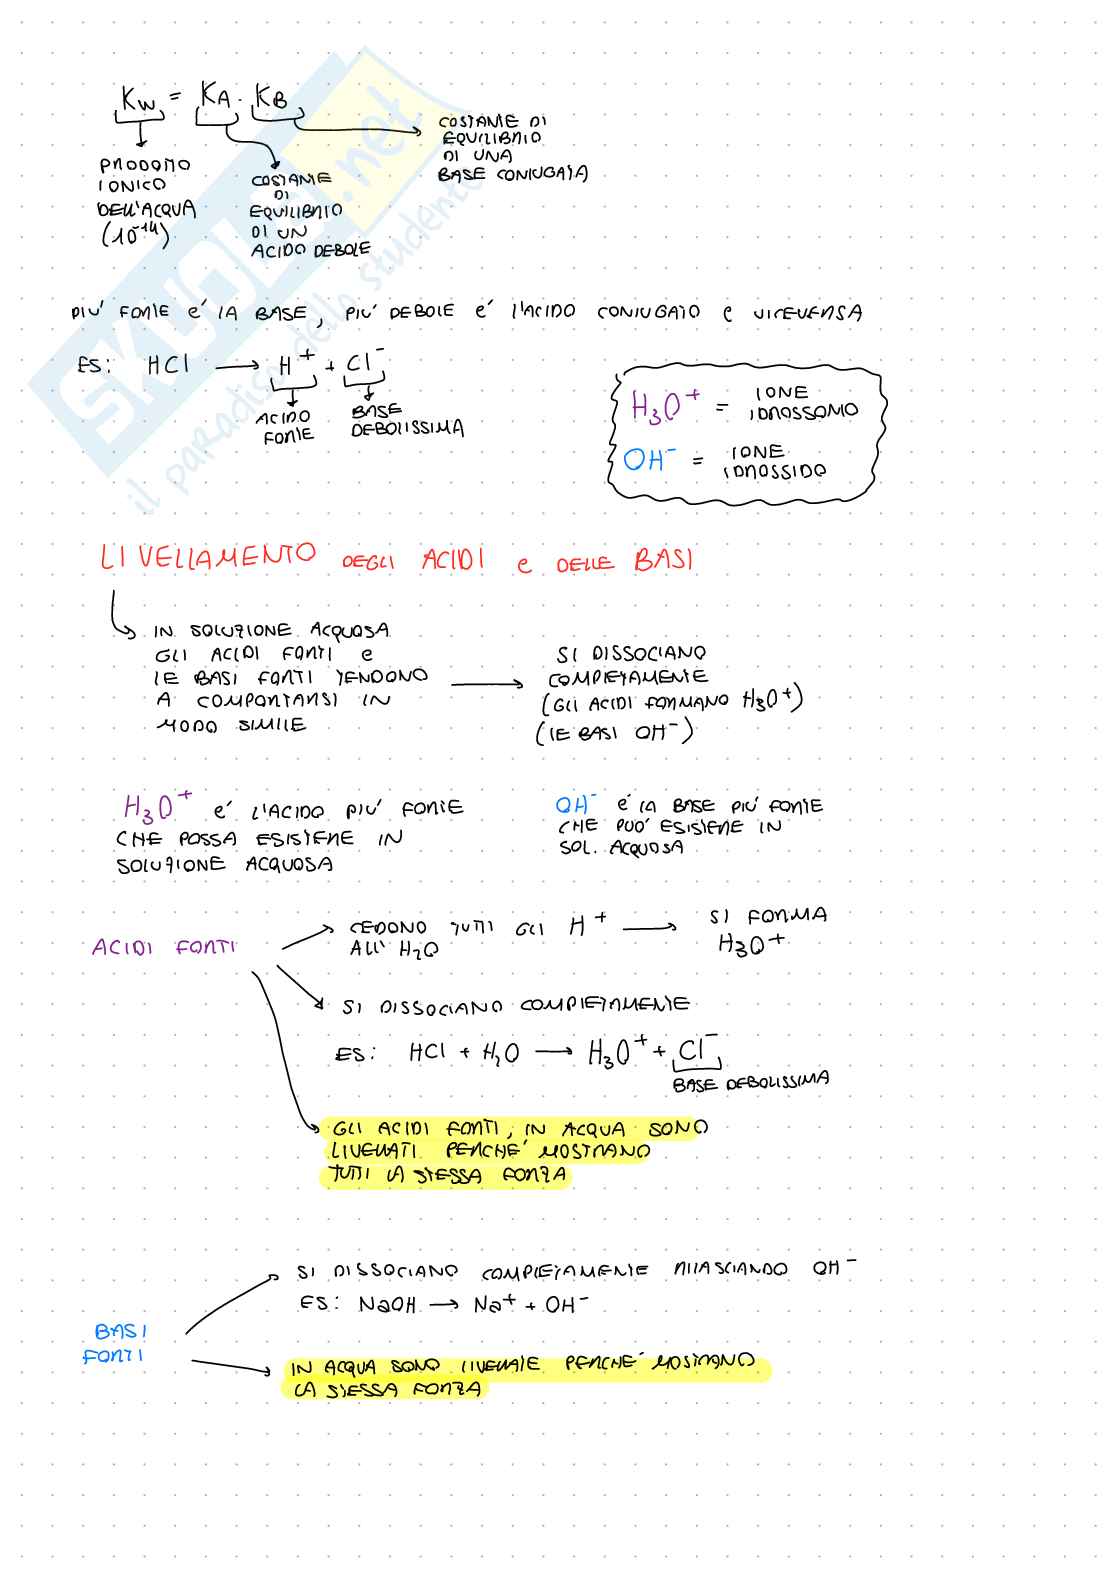 Kw = KA · KB
PRODOTTO
IONICO
DELL'ACQUA
(10⁻¹⁴)
COSTANTE
DI
EQUILIBRIO
DI UN
ACIDO DEBOLE
COSTANTE DI
EQUILIBRIO
DI UNA
BASE CONIUGATA
PIU' FORTE E' LA BASE, PIU' DEBOLE E' L'ACIDO CONIUGATO E VICEVERSA
ES: HCl → H⁺ + Cl⁻
ACIDO
FORTE
BASE
DEBOLISSIMA
H₃O⁺ = IONE
IDROSSONIO
OH⁻ = IONE
IDROSSIDO
LIVELLAMENTO DEGLI ACIDI E DELLE BASI
IN SOLUZIONE ACQUOSA
GLI ACIDI FORTI E
LE BASI FORTI TENDONO
A COMPORTARSI IN
MODO SIMILE
SI DISSOCIANO
COMPLETAMENTE
(GLI ACIDI FORMANO H₃O⁺)
(LE BASI OH⁻)
H₃O⁺ E' L'ACIDO PIU' FORTE
CHE POSSA ESISTERE IN
SOLUZIONE ACQUOSA
OH⁻ E' LA BASE PIU' FORTE
CHE PUO' ESISTERE IN
SOL. ACQUOSA
ACIDI FORTI
CEDONO TUTTI GLI H⁺ → SI FORMA
ALL' H₂O
H₃O⁺
SI DISSOCIANO COMPLETAMENTE
ES: HCl + H₂O → H₃O⁺ + Cl⁻
BASE DEBOLISSIMA
GLI ACIDI FORTI, IN ACQUA SONO
LIVELLATI PERCHE' MOSTRANO
TUTTI LA STESSA FORZA
BASI
FORTI
SI DISSOCIANO COMPLETAMENTE RILASCIANDO OH⁻
ES: NaOH → Na⁺ + OH⁻
IN ACQUA SONO LIVELLATE PERCHE' MOSTRANO
LA STESSA FORZA
SKUOLA.net
il paradiso dello studente